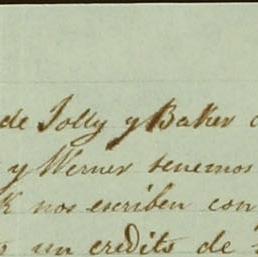 de Jolly y Baker
y Werner tenemos
K nos escriben con
un credits de